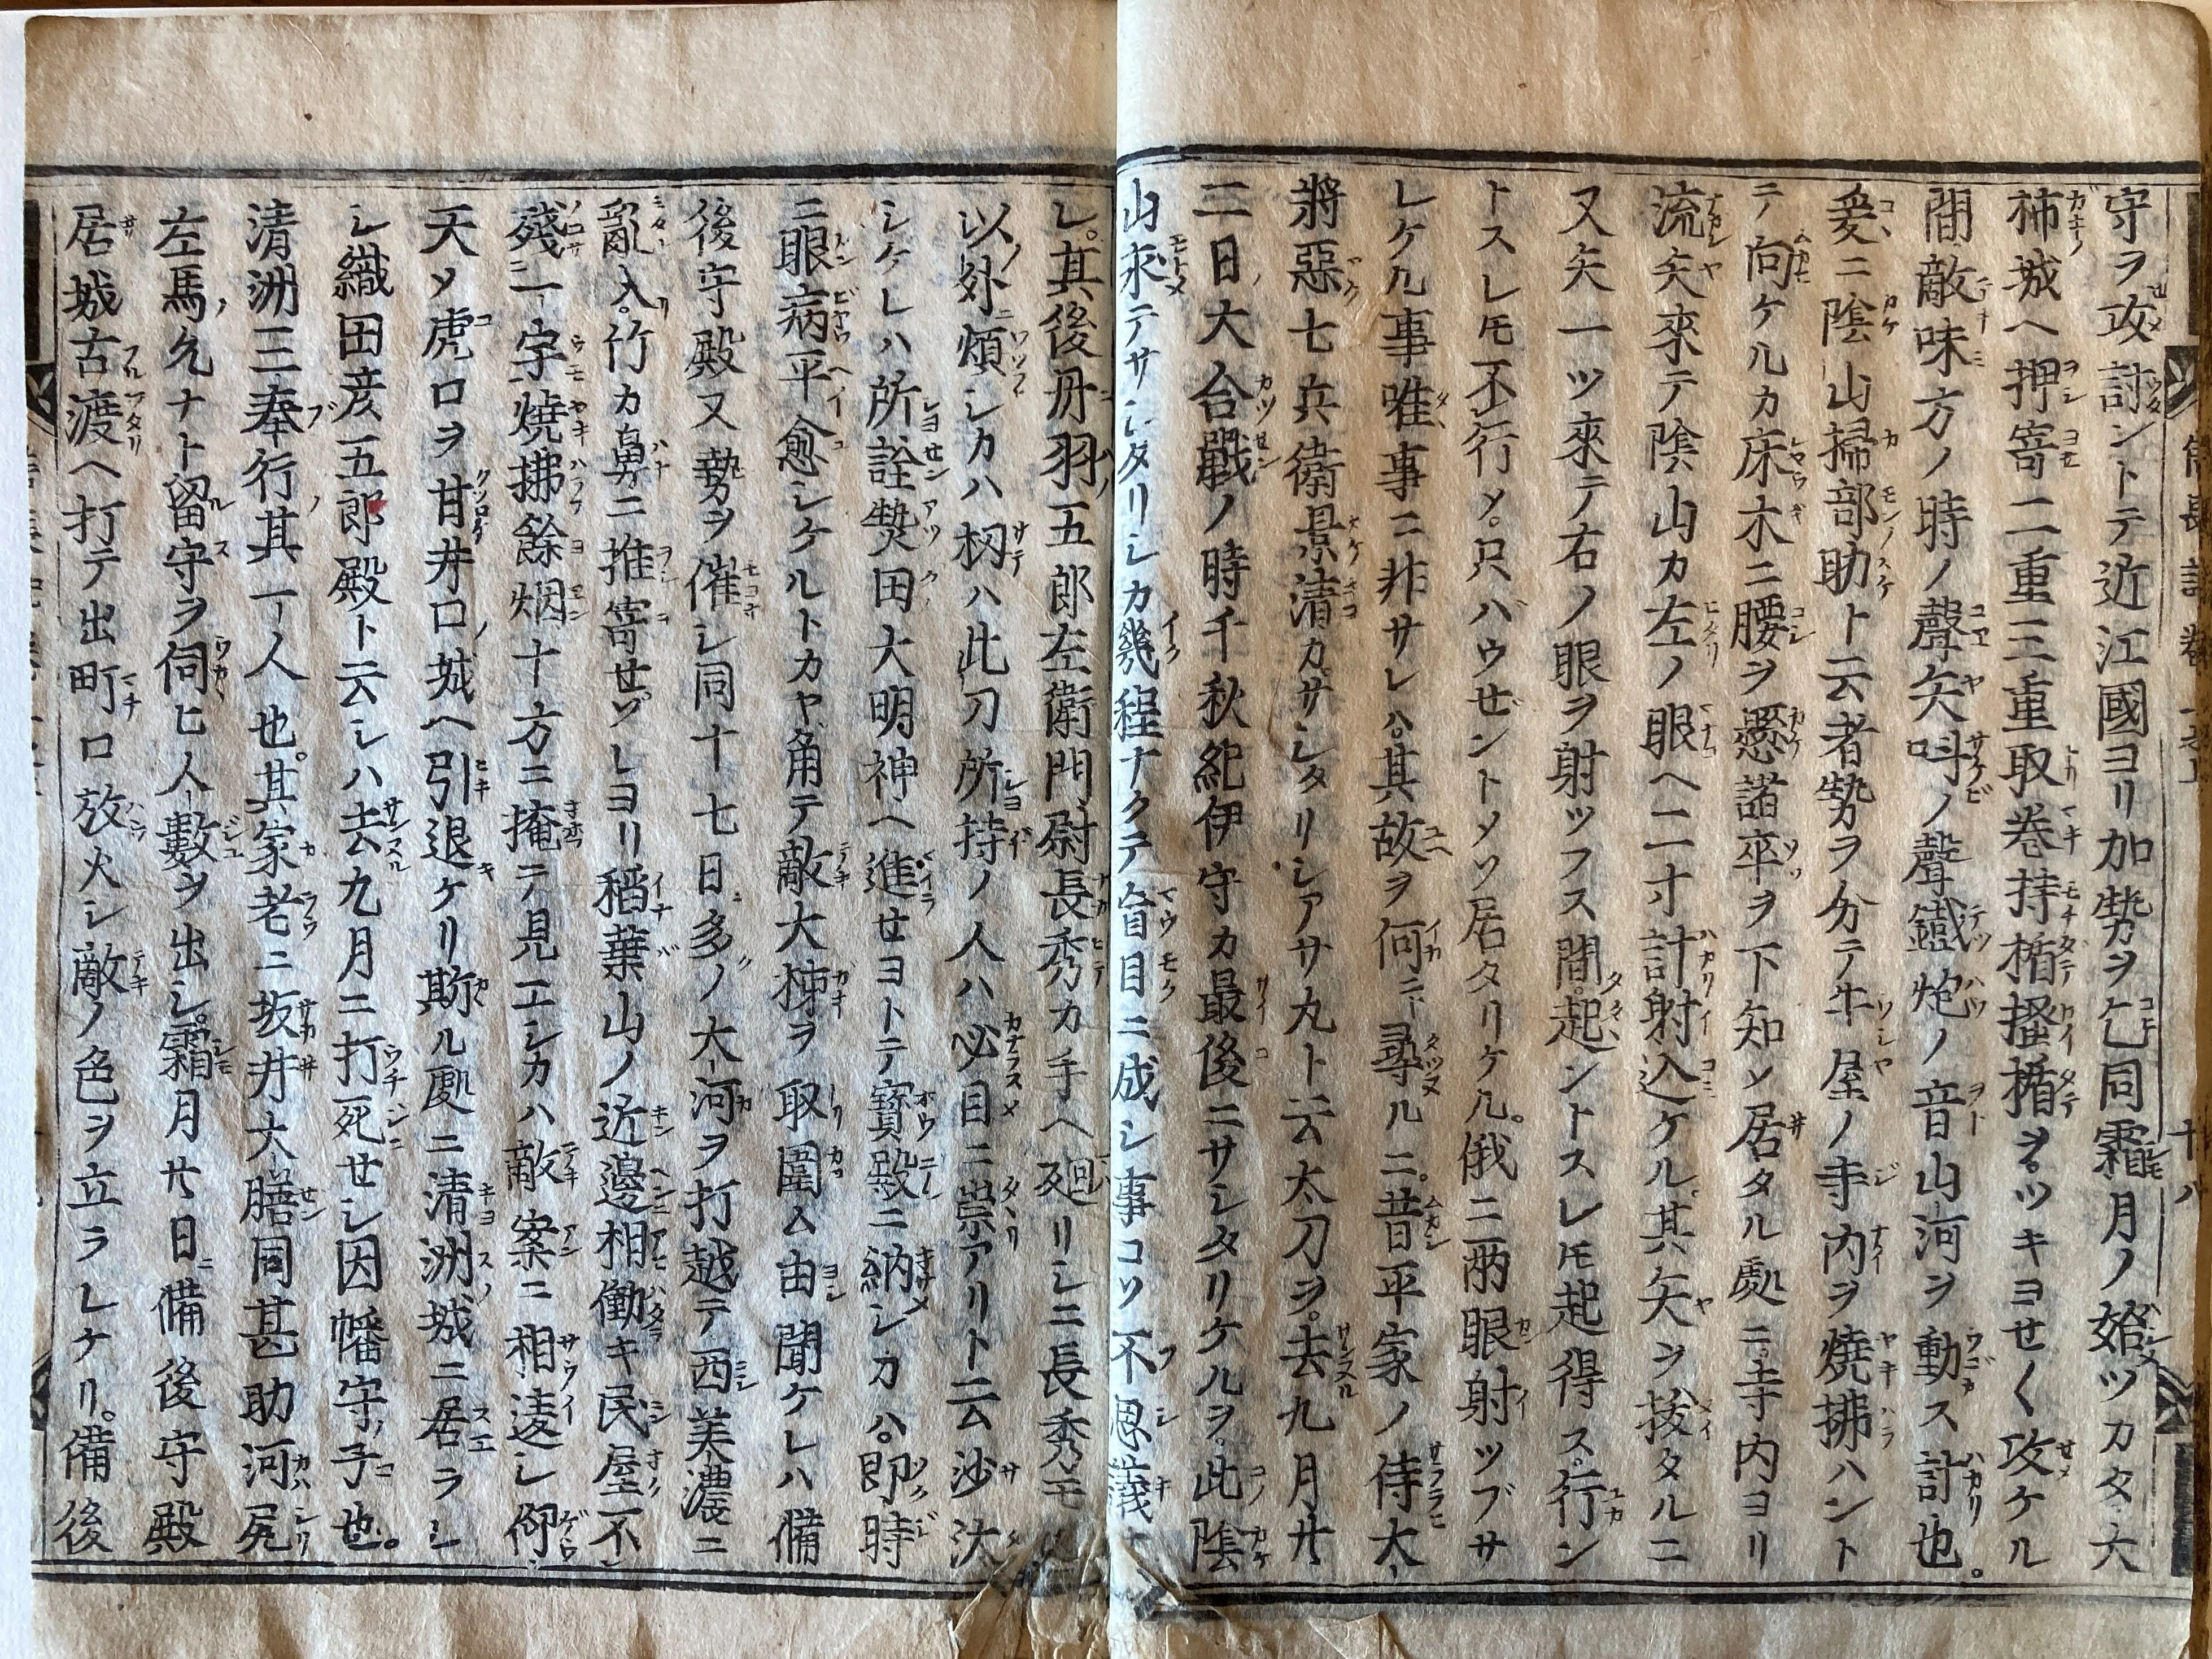 守ヲ攻討ントテ近江國ヨリ加勢ヲ乞同霜月ノ始ツカタ大
柿城ヘ押寄二重三重取巻持楯搔楯ヲツキヨせ〱攻ケル
間敵味方ノ時ノ聲矢呌ノ聲鐵炮ノ音山河ヲ動ス計也。
爰ニ陰山掃部助ト云者勢ヲ分テ牛屋ノ寺内ヲ燒拂ハント
テ向ケルカ床木ニ腰ヲ懸諸卒ヲ下知ソ居タル處ニ寺内ヨリ
流矢來テ陰山カ左ノ眼ヘ二寸計射込ケル。其矢ヲ拔タルニ
又矢一ツ來テ右ノ眼ヲ射ツフス間。起ントスレ𪜈起得ス。行ン
トスレ𪜈不行〆。只バウゼントメソ居タリケル。俄ニ兩眼射ツブサ
レケル事唯事ニ非サレハ。其故ヲ何ニト尋ルニ。昔平家ノ侍大
將惡七兵衛景清カ。サシタリシアサ丸ト云太刀ヲ。去九月廿
二日大合戰ノ時千秋紀伊守カ最後ニサシタリケルヲ。此陰
山求テサシタリシカ幾程ナクテ盲目ニ成シ事コソ不思議ナ
レ。其後丹羽五郎左衛門尉長秀カ手ヘ廻リシニ長秀モ
以外煩シカハ扨ハ此刀所持ノ人ハ必目ニ崇アリト云沙汰
シケレハ所詮𤍠田大明神ヘ進せヨトテ寶殿ニ納シカハ。即時
ニ眼病平愈シケルトカヤ角テ敵大柹ヲ取圍ム由聞ケレハ備
後守殿又勢ヲ催シ同十七日多ノ大河ヲ打越テ西美濃ニ
亂入。竹カ鼻ニ推寄せヅレヨリ稻葉山ノ近邊相働キ民屋不
殘一宇燒拂餘烟十方ニ掩テ見エシカハ敵案ニ相違シ仰
天〆虎口ヲ甘井口城ヘ引退ケリ斯ル處ニ清洲城ニ居ラレ
シ織田彦五郎殿ト云シハ去九月ニ打死せシ因幡守子也。
清洲三奉行其一人也。其家老ニ坂井大膳同甚助河尻
左馬允ナト留守ヲ伺ヒ人數ヲ出シ。霜月廿日ニ備後守殿
居城古渡ヘ打テ出町口放火シ敵ノ色ヲ立ラレケリ。備後